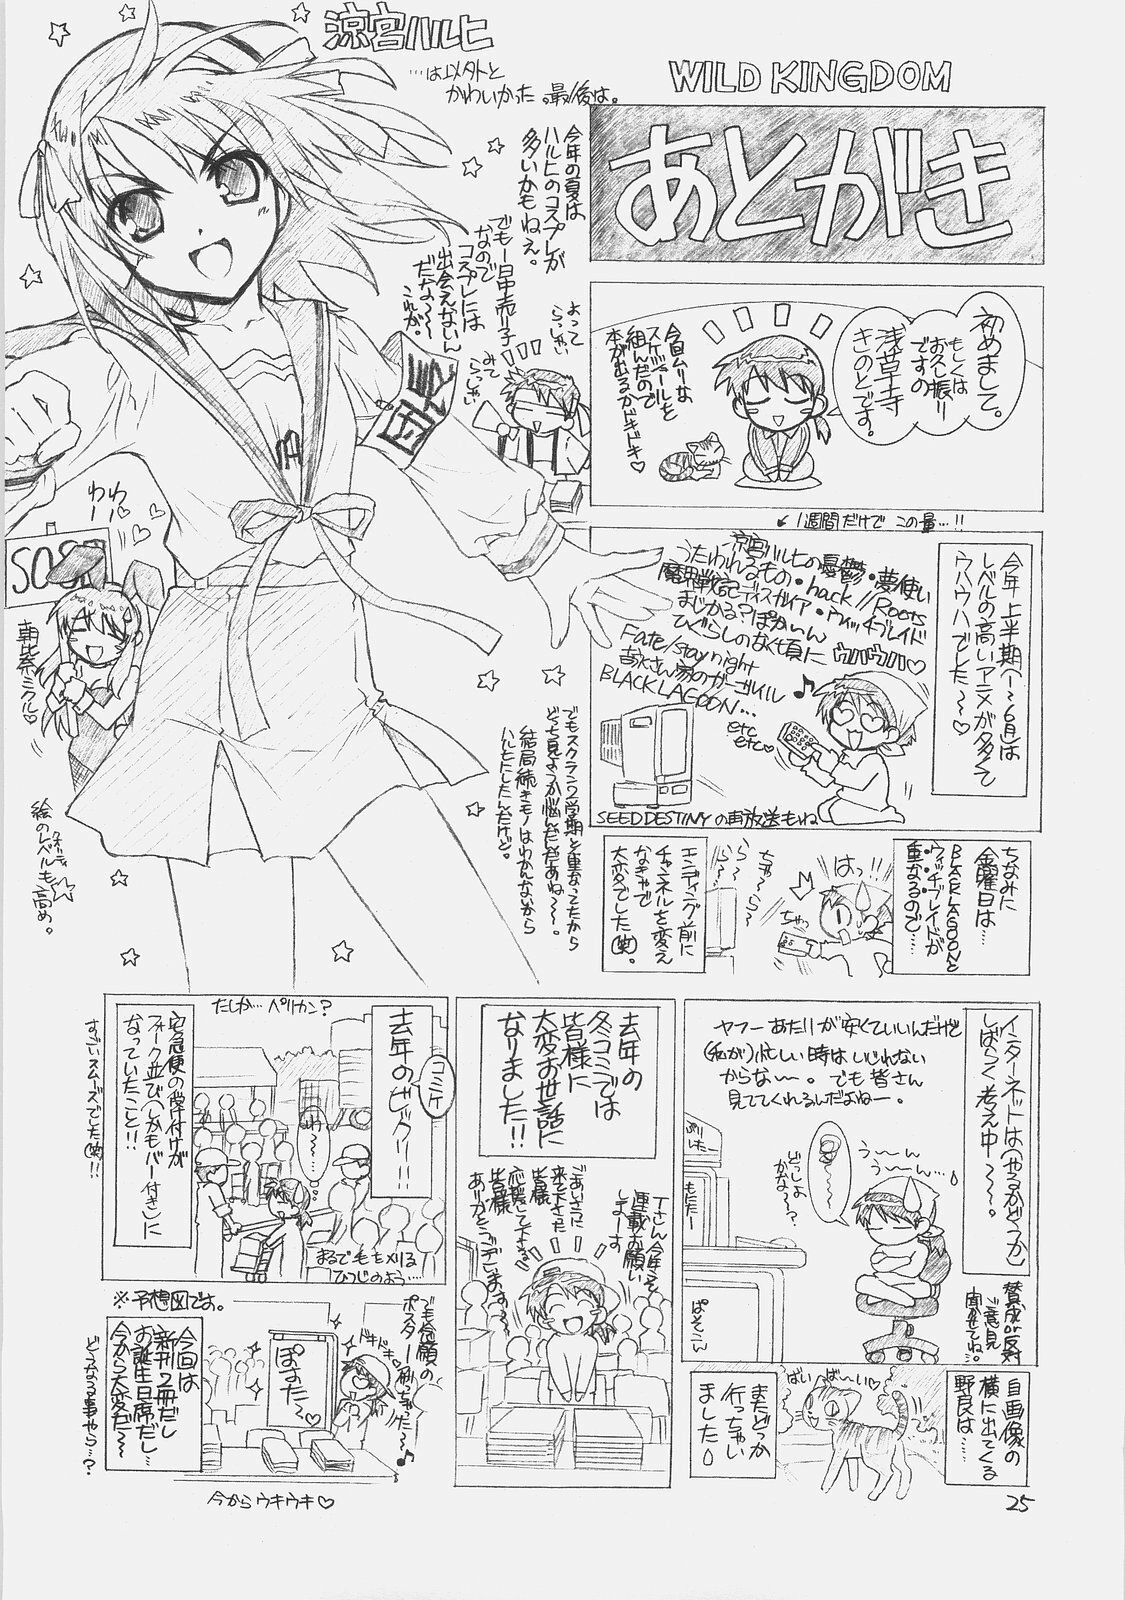 WILD KINGDOM
あとがき
涼宮ハルヒ
…は以外と
かわいかった。最後は。
今年の夏は
ハルヒのコスプレが
多いかもねぇ。
でもー日中売り子
なので
コスプレには
出会えないん
だな～～
これが。
よってらっしゃい
みてらっしゃい
団長
わー
わー
SOS
朝比奈ミクル♡
絵のレベルも高め。
クオリティ
初めまして。
もしくは
お久し振り
ですの
浅草寺
きのとです。
今回ムリな
スケジュールを
組んだので
本が出るかドキドキ♡
↙1週間だけで この量…!!
今年上半期(～6月)は
レベルの高いアニメが多くて
ウハウハでした～♡
涼宮ハルヒの憂鬱・夢使い
うたわれるもの・.hack//Roots
魔界戦記ディスガイア・ウィッチブレイド
まじかる?ぽかぃん
ひぐらしのなく頃に
ウハウハ♡
Fate/stay night
吉永さん家のガーゴイル
BLACK LAGOON…
etc
etc♡
SEED DESTINYの再放送もね
でもスクラン2学期と重なってたから
どっち見ようか悩んだんだあね～～。
結局続きモノはわかんないから
ハルヒにしたんだけど。
ちなみに
金曜日は…
BLACK LAGOONと
ウィッチブレイドが
重なるので…
はっ!!
ちゃっ
エンディング前に
チャンネルを変え
なきゃで
大変でした(笑)。
インターネットは(やるかどうか)
しばらく考え中～～。
ヤフーあたりが安くていいんだけど
(私が)忙しい時はいじれない
からな～。でも皆さん
見ててくれるんだよねー。
う～ん
う～ん…
どっしよ
かな～?
もにたー
ぱそこん
賛成or反対
ご意見
聞かせてね…
自画像の
横に出てくる
野良は……
ばい ば～い♡
またどっか
行っちゃい
ました
去年の
冬コミでは
皆様に
大変お世話に
なりました!!
Tさん今年こそ
連載お願い
しまーす
ごあいさつに
来て下さった
皆様
応援して下さる
皆様
ありがとうございます～
コミケ
去年のビックリ!!
たしか…ペリカン?
宅急便の受付けが
フォーク並び(しかもバー付き)に
なっていたこと!!
すごいスムーズでした(笑)!!
わ～…
まるで毛をメリる
ひつじのよう…
※予想図です。
今回は
新刊2冊だし
お誕生日席だし…
今から大変だ～
どうなる事やら…?
でも念願の
ポスター刷っちゃった～♪
ドキドキ
ぽすた～
今からウキウキ♡
25